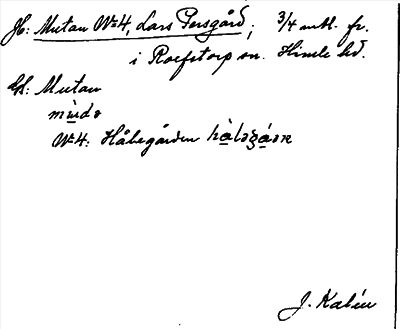 Jb: Mutan No 4, Lars Persgård; 3/4 mtl. fr.
i Rolfstorp sn. Himle hd.
Ul: Mutan
mùdə
No 4: Hålsgården hàlsgåʀ
J. Kalén